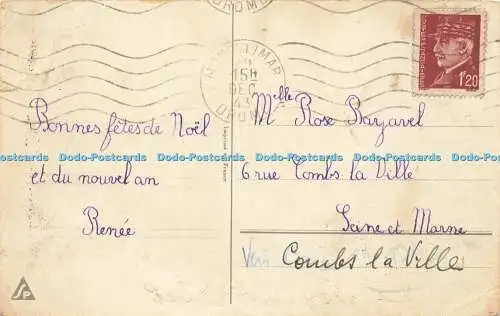 DROME
MONTELIMAR
15H
DEC
43
DROME
1'20
Bonnes fêtes de Noël
et du nouvel an
Renée
Imprimé en France
Mlle Rose Bayavel
6 rue Combs la Ville
Seine et Marne
Combs la Ville
Dodo-Postcards Dodo-Postcards Dodo-Postcards Dodo-Postcards Dodo-Postcards